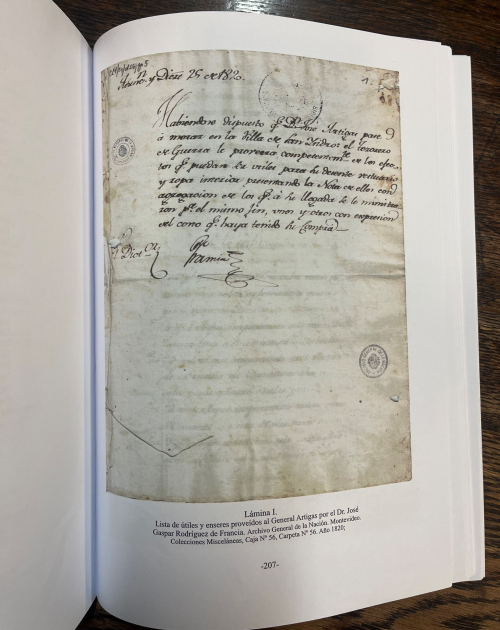 Asunⁿ y Diciᵉ 25 de 1820
Habiendose dispuesto qᵉ Dⁿ Jose Artigas pase
á morar en la Villa de San Ysidro, el tesorero
de Guerra le proveerá competentemᵗᵉ de los efec-
tos qᵉ puedan ser utiles para su decente vestuario
y ropa interior, presentando la Nota de ellos con
agregacion de los qᵉ á su llegada se le ministra-
ron pᵃ el mismo fin, unos y otros con expresion
del costo qᵉ haya tenido su compra
Francia
Lámina I.
Lista de útiles y enseres proveídos al General Artigas por el Dr. José
Gaspar Rodríguez de Francia. Archivo General de la Nación. Montevideo.
Colecciones Misceláneas, Caja Nº 56, Carpeta Nº 56. Año 1820;
-207-